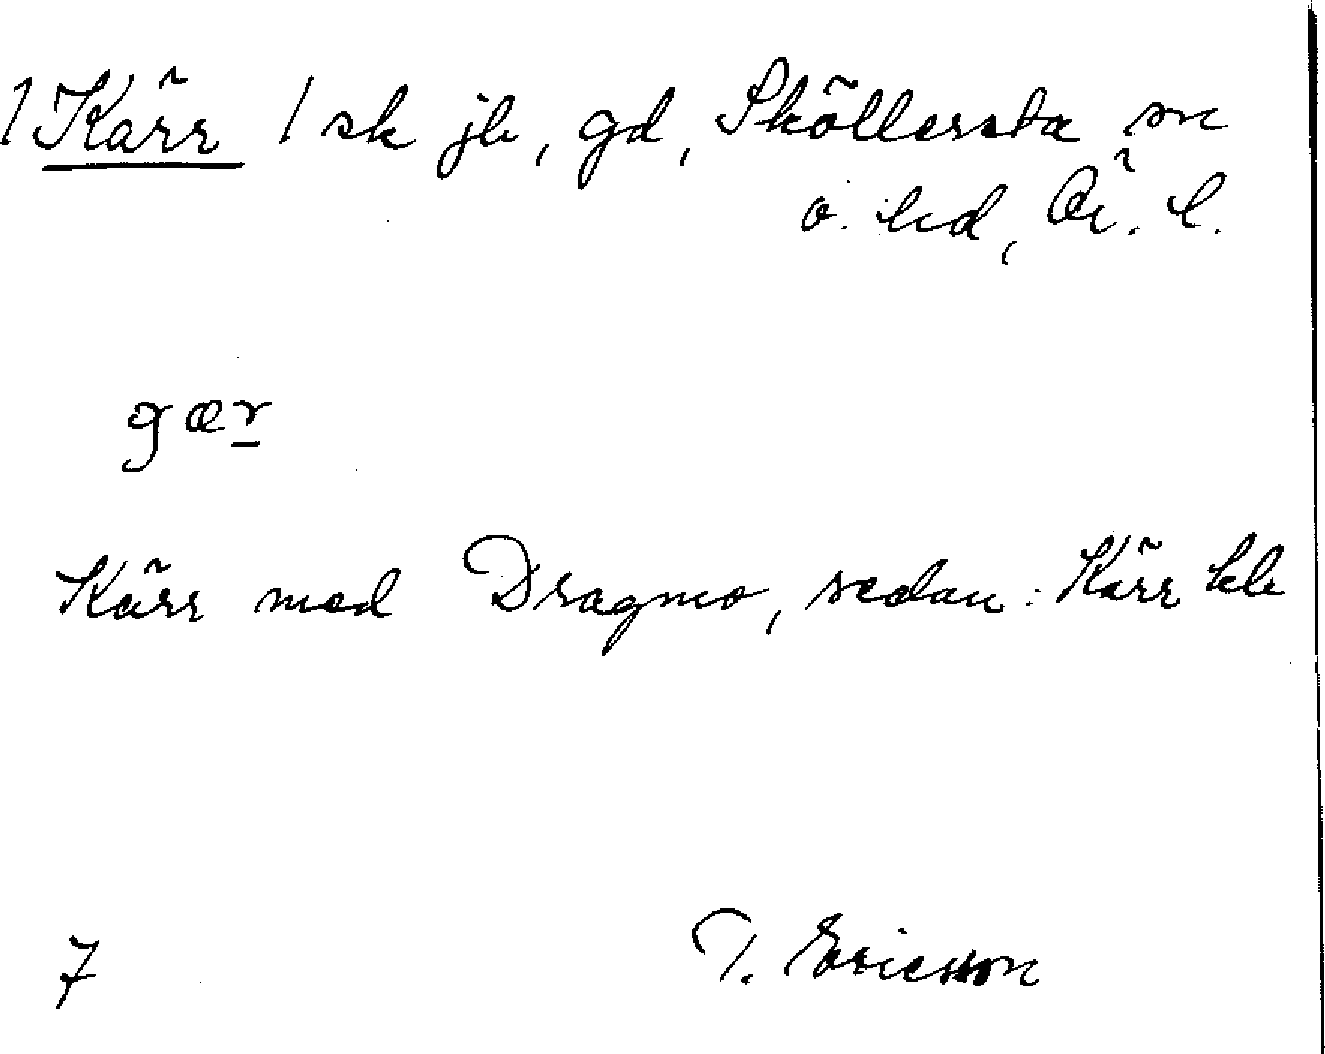 1 Kärr 1 sk jb, gd, Sköllersta sn
o. hd, Ör. l.
gær
Kärr med Dragmo, sedan: Kärr kb
7 T. Ericsson